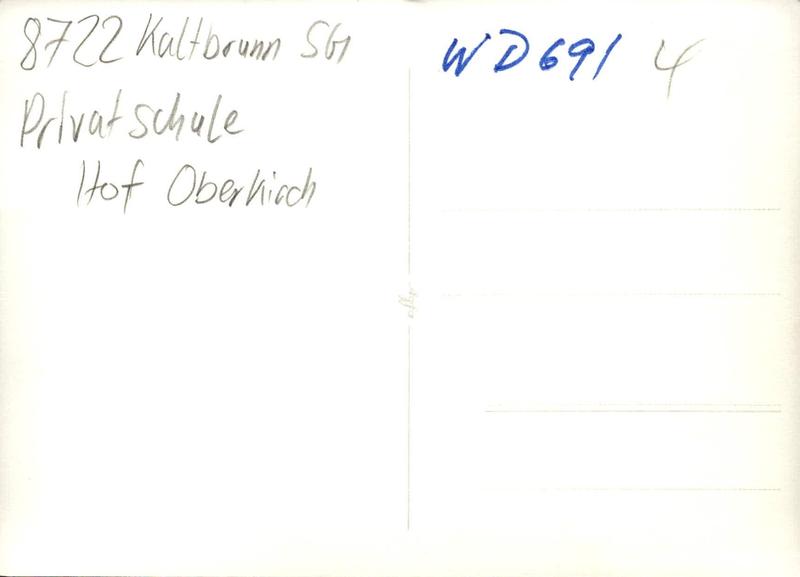 8722 Kaltbrunn SG
Privatschule
Hof Oberkirch
WD691 4